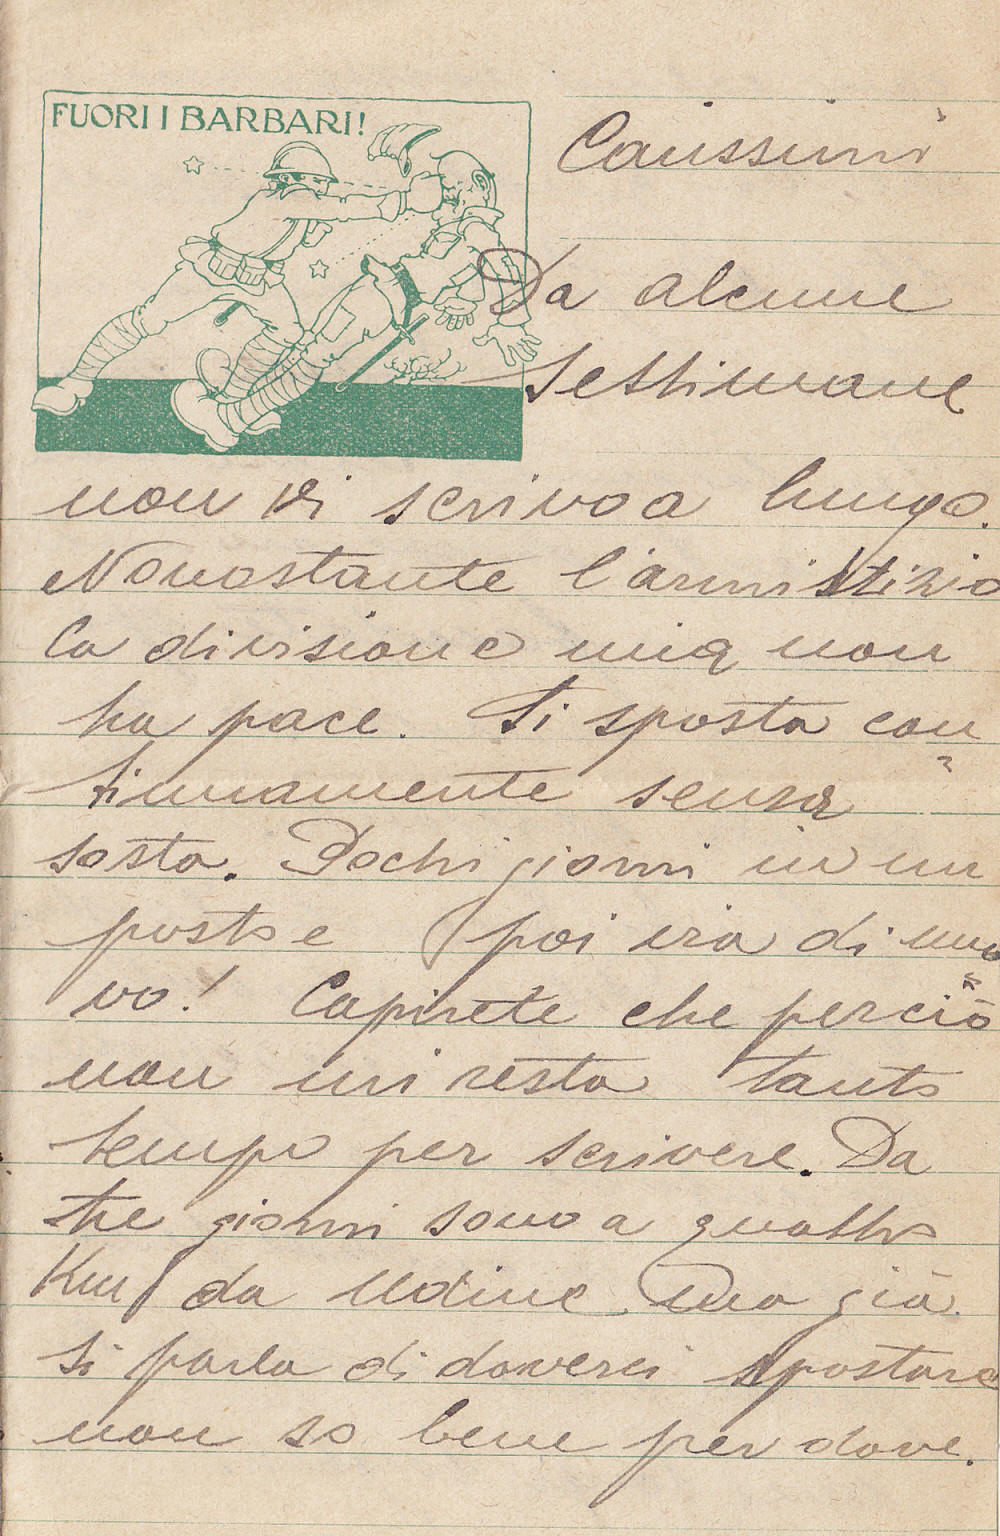 FUORI I BARBARI!
Carissimi
Da alcune
settimane
non vi scrivo a lungo.
Nonostante l'armistizio
la divisione mia non
ha pace. Si sposta con=
tinuamente senza
sosta. Pochi giorni in un
posto e poi via di nuo=
vo! Capirete che perciò
non mi resta tanto
tempo per scrivere. Da
tre giorni sono a quattro
Km da Udine ma già
si parla di doverci spostare
non so bene per dove.